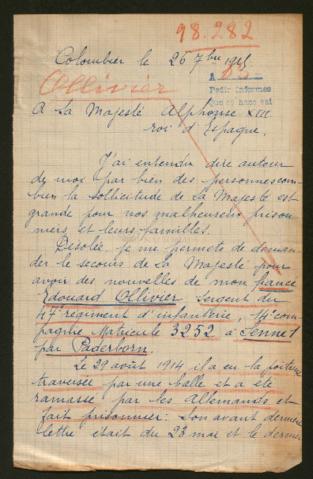 98.282
Colombier le 26 7bre 1915
Ollivier
Pedir informes
A La Majesté Alphonse XIII
roi d'Espagne,
J'ai entendu dire autour
de moi par bien des personnes com-
bien la sollicitude de La Majesté est
grande pour nos malheureux prison
niers et leurs familles.
Désolée, je me permets de deman
der le secours de La Majesté pour
avoir des nouvelles de mon fiancé
Edouard Ollivier, sergent du
47e régiment d'infanterie, 4e com-
pagnie Matricule 3252 à Sennet
par Paderborn.
Le 29 août 1914 il a eu la poitrine
traversée par une balle et a été
ramassé par les Allemands et
fait prisonnier. Son avant dernière
lettre était du 23 mai et le derni